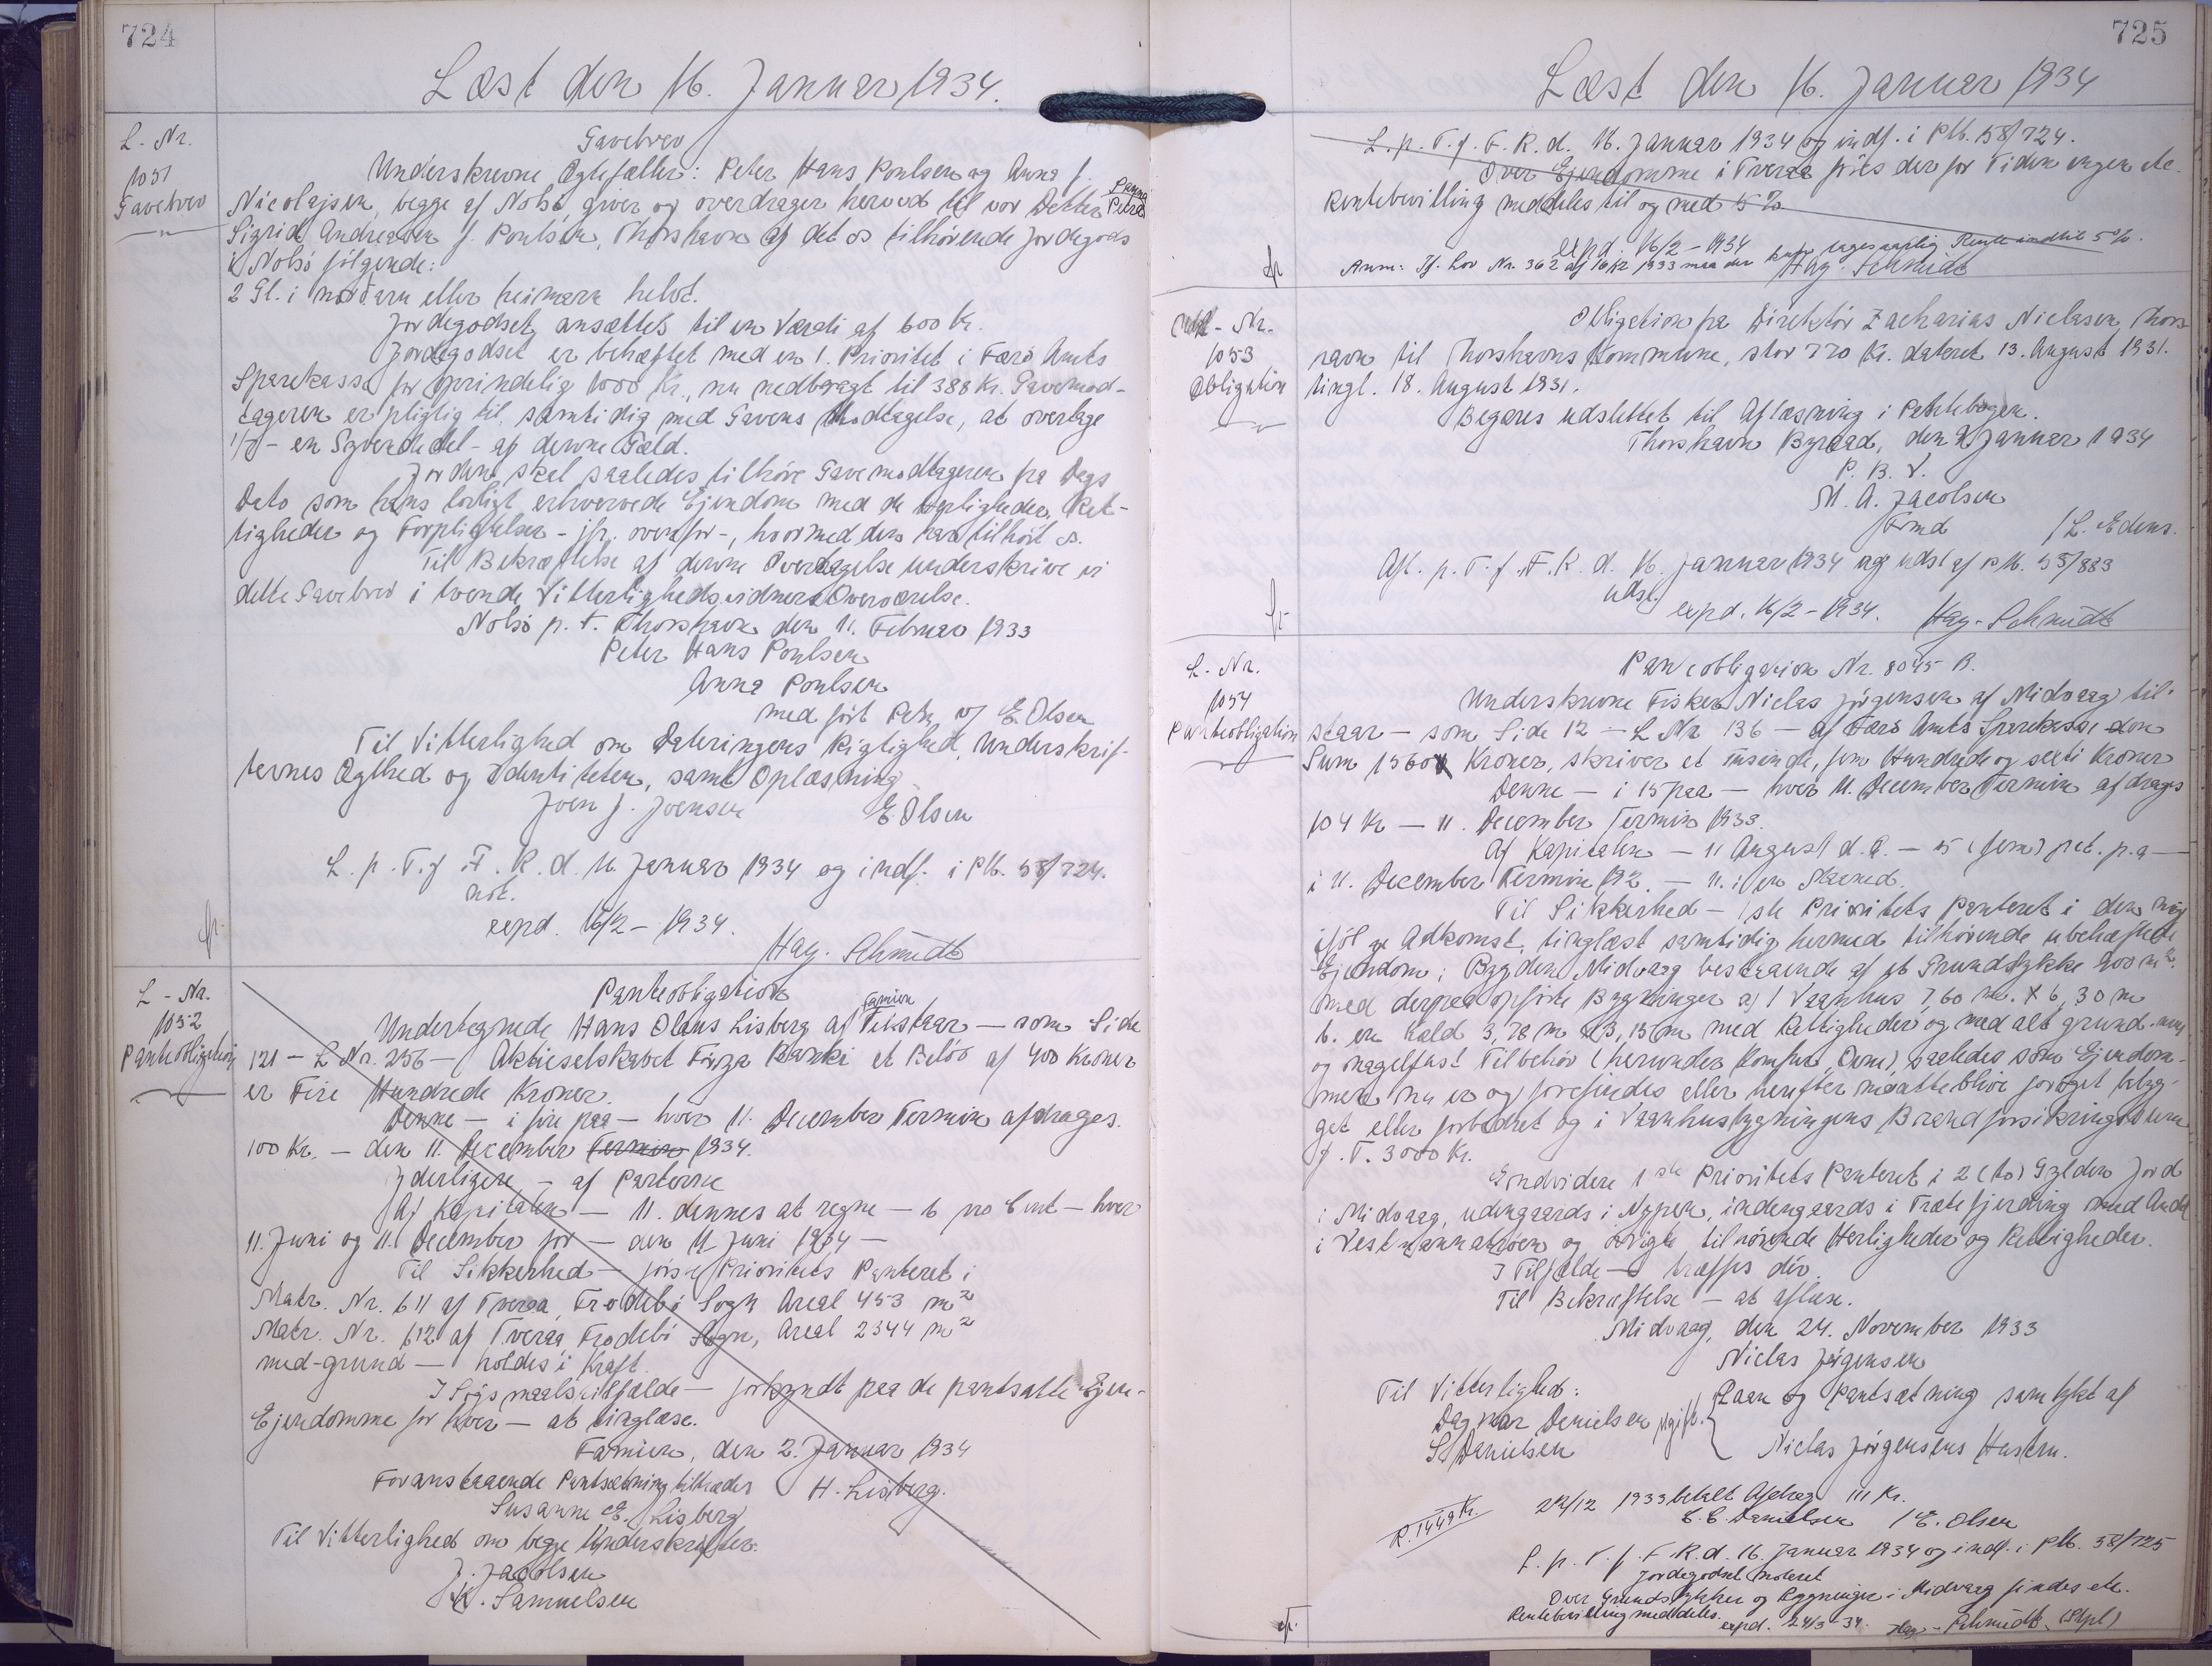 724
Læst den 16. Januar 1934.
L. Nr.
1051
Gavebrev
Gavebrev
Underskrevne Ægtefæller: Peter Hans Poulsen og Anna f.
Nicolajsen, begge af Nolsö, giver og overdrager herved til vor Datter Petra
Sigrid Andreasen f. Poulsen, Thorshavn af det os tilhörende Jordegods
i Nolsö fölgende:
2 Gl. i nordara eller heimara helvt.
Jordegodset ansættes til en Værdi af 600 Kr.
Jordegodset er behæftet med en 1. Prioritet i Færö Amts
Sparekasse for oprindelig 1000 Kr., nu nedbragt til 388 Kr. Gavemod-
tageren er pligtig til, samtidig med Gavens Modtagelse, at overtage
1/7 - en Syvendedel - af denne Gæld.
Jorden skal saaledes tilhöre Gavemodtageren fra Dags
Dato som hans lovligt erhvervede Ejendom med de Herligheder, Ret-
tigheder og Forpligtelser - jfr. ovenfor -, hvormed den har tilhört os.
Til Bekræftelse af denne Overdragelse underskrive vi
dette Gavebrev i tvende Vitterlighedsvidners Overværelse.
Nolsö p. t. Thorshavn den 11. Februar 1933
Peter Hans Poulsen
Anna Poulsen
med fört Pen v/ E. Olsen
Til Vitterlighed om Dateringens Rigtighed, Underskrif-
ternes Ægthed og Identiteten, samt Oplæsning.
Joen J. Joensen E. Olsen
L. p. T. f. F. R. d. 16. Januar 1934 og indf. i Pb. 58/724.
not.
expd. 16/2 - 1934.
Hag. Schmidt
L - Nr.
1052
Panteobligation
Panteobligation
Famien
Undertegnede Hans Olaus Lisberg af Tilstaar - som Side
121 - L Nr. 256 - Aktieselskabet Föroya Banki et Belöb af 400 Kroner
er Fire Hundrede Kroner.
Denne - i fire paa - hver 11. December Termin afdrages.
100 Kr. - den 11. December Termin 1934.
Yderligere - af Parterne
Af Kapitalen - 11. dennes at regne - 6 pro Cent - hver
11. Juni og 11. December for - den 11 Juni 1934 -
Til Sikkerhed - förste Prioritets Panteret i
Matr. Nr. 611 af Tveraa, Frodebö Sogn Areal 453 m²
Matr. Nr. 612 af Tveraa, Frodebö Sogn, Areal 2344 m²
med-grund - holdes i Kraft.
I Sögsmaalstilfælde - forkyndt paa de pantsatte Ejen-
Ejendomme for hver - at tinglæse.
Famien, den 2. Januar 1934
Foranstaaende Pantsætning tiltrædes H. Lisberg.
Susanne E. Lisberg
Til Vitterlighed om begge Underskrifter:
J. Jacobsen
K. Samuelsen
725
Læst den 16. Januar 1934
L. p. T. f. F. R. d. 16. Januar 1934 og indf. i Pb. 58/724.
Over Ejendomme i Tveraa föres der for Tiden ingen etc.
Rentebevilling meddeles til og med 5 %
expd. 16/2 - 1934
Anm: Jf. Lov Nr. 362 af 16/12 1933 maa der kun tages aarlig Rente indtil 5 %.
Hag. Schmidt
Nr.
1053
Obligation
Obligation fra Direktör Zacharias Niclasen, Thors-
havn til Thorshavns Kommune, stor 770 Kr. dateret 13. August 1931.
tingl. 18. August 1931.
Begæres udslettet til Aflæsning i Pantebogen.
Thorshavn Byraad, den 9 Januar 1934
P. B. V.
M. A. Jacobsen
Fmd / L. Edens.
Afl. p. T. f. F. R. d. 16. Januar 1934 og udsl af Pb. 55/883
udsl.
expd. 16/2 - 1934. Hag. Schmidt
L. Nr.
1054
Panteobligation
Panteobligation Nr. 8045 B.
Underskrevne Fisker Niclas Jörgensen af Midvaag til-
staar - som Side 12 - L Nr 136 - af Færö Amts Sparekasse den
Sum 1560 Kroner, skriver et Tusinde, fem Hundrede og seksti Kroner
Denne - i 15 paa - hver 11. December Termin afdrages
104 Kr - 11. December Termin 1933.
Af Kapitalen - 11 August d. A. - 5 (fem) pct. p. a -
i 11. December Termin 192. - 11. i en Maaned.
Til Sikkerhed - 1ste Prioritets Panteret i den mig
ifölge Adkomst, tinglæst samtidig hermed tilhörende ubehæftede
Ejendom i Bygden Midvaag bestaaende af et Grundstykke 400 m².
med derpaa opförte Bygninger a) 1 Vaanhus 7,60 m. X 6,30 m
b. en Hald 3,78 m X 3,15 m med Rettigheder og med alt grund-mur
og nagelfast Tilbehör (herunder Komfur, Ovne), saaledes som Ejendom-
men nu er og forefindes eller herefter maatte blive foröget bebyg-
get eller forbedret og i Vaanhusbygningens Brandforsikringssum
p. T. 3000 Kr.
Endvidere 1ste Prioritets Panteret i 2 (to) Gylden Jord
i Midvaag, udengaards i Nypen, indengaards i Træte fjerding med Andel
i Vestmannahroen og övrige tilhörende Herligheder og Rettigheder.
I Tilfælde - træffes div.
Til Bekræftelse - at aflæse.
Midvaag, den 24. November 1933
Niclas Jörgensen
Til Vitterlighed:
Dagmar Danielsen ugift. Laan og Pantsætning samtykt af
S. Danielsen Niclas Jörgensens Hustru.
R. 1449 Kr. 22/12 1933 betalt Afdrag 111 Kr.
C. C. Danielsen / E. Olsen
L. p. T. f. F. R. d. 16. Januar 1934 og indf. i Pb. 58/725
Jordegodset noteret
Over Grundstykker og Bygninger i Midvaag findes etc.
Rentebevilling meddeles.
expd. 24/3-34. Hag. Schmidt (Stpl)